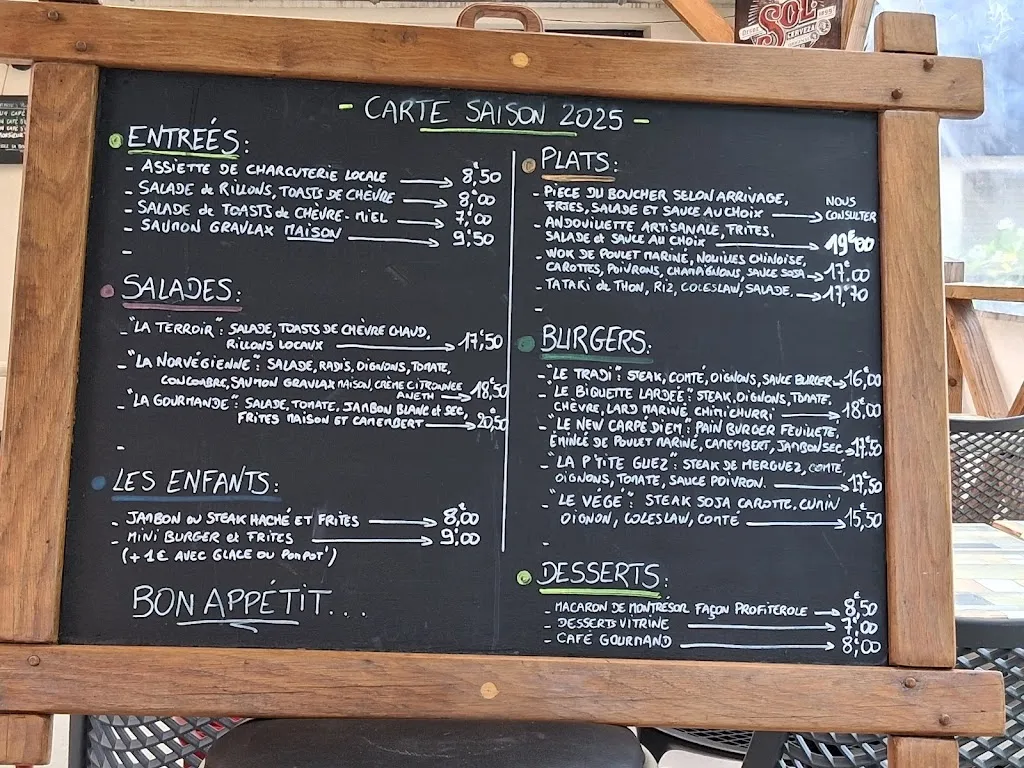 SOL
CERVEZA
- CARTE SAISON 2025 -
ENTREÉS:
- ASSIETTE DE CHARCUTERIE LOCALE → 8€,50
- SALADE de RILLONS, TOASTS DE CHÈVRE → 8€,00
- SALADE de TOASTS de CHÈVRE-MIEL → 7€,00
- SAUMON GRAVLAX MAISON → 9€,50
-
SALADES:
- "LA TERROIR": SALADE, TOASTS DE CHÈVRE CHAUD,
RILLONS LOCAUX → 17€,50
- "LA NORVÉGIENNE": SALADE, RADIS, OIGNONS, TOMATE,
CONCOMBRE, SAUMON GRAVLAX MAISON, CRÈME CITRONNÉE → 18€,50
ANETH
- "LA GOURMANDE": SALADE, TOMATE, JAMBON BLANC et SEC,
FRITES MAISON ET CAMEMBERT → 20€,50
-
LES ENFANTS:
- JAMBON ou STEAK HACHÉ ET FRITES → 8€,00
- MINI BURGER et FRITES → 9€,00
(+ 1€ AVEC GLACE OU POMPOT')
BON APPÉTIT...
PLATS:
- PIÈCE DU BOUCHER SELON ARRIVAGE,
FRITES, SALADE ET SAUCE AU CHOIX → NOUS CONSULTER
- ANDOUILLETTE ARTISANALE, FRITES,
SALADE et SAUCE AU CHOIX → 19€00
- WOK DE POULET MARINÉ, NOUILLES CHINOISE,
CAROTTES, POIVRONS, CHAMPIGNONS, SAUCE SOJA → 17€,00
- TATAKI de THON, RIZ, COLESLAW, SALADE. → 17€,70
-
BURGERS:
- "LE TRADI" STEAK, COMTÉ, OIGNONS, SAUCE BURGER → 16€,00
- "LE BIQUETTE LARDÉE": STEAK, OIGNONS, TOMATE,
CHÈVRE, LARD MARINÉ, CHIMICHURRI → 18€,00
- "LE NEW CARPÉ DIEM": PAIN BURGER FEUILLETÉ,
ÉMINCÉ DE POULET MARINÉ, CAMEMBERT, JAMBON SEC → 17€,50
- "LA P'TITE GUEZ": STEAK DE MERGUEZ, COMTÉ,
OIGNONS, TOMATE, SAUCE POIVRON. → 17€,50
- "LE VÉGÉ": STEAK SOJA CAROTTE, CUMIN
OIGNON, COLESLAW, COMTÉ → 15€,50
-
DESSERTS:
- MACARON DE MONTRÉSOR FAÇON PROFITEROLE → 8€,50
- DESSERTS VITRINE → 7€,00
- CAFÉ GOURMAND → 8€,00